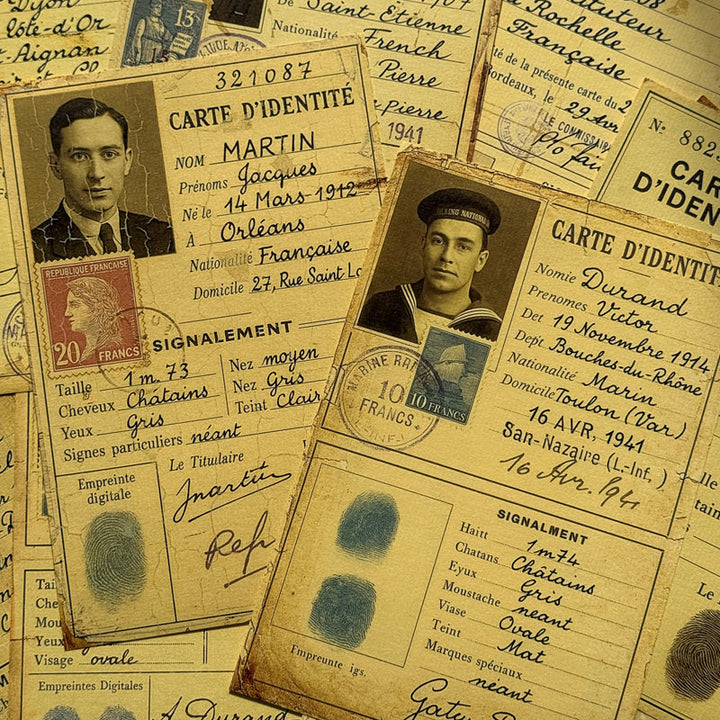 Dijon
Côte-d'Or
St-Aignan
15
De Saint-Etienne
Nationalité French
Pierre
Pierre
1941
Instituteur
La Rochelle
Française
té de la présente carte du 2
Bordeaux, le 29 Avr
LE COMMISSAIRE
N° 882
CAR
D'IDEN
321087
CARTE D'IDENTITÉ
NOM MARTIN
Prénoms Jacques
Né le 14 Mars 1912
A Orléans
Nationalité Française
Domicile 27, Rue Saint Lo
REPUBLIQUE FRANÇAISE
20 FRANCS
SIGNALEMENT
Taille 1 m. 73
Cheveux Châtains
Yeux Gris
Signes particuliers néant
Nez moyen
Nez Gris
Teint Clair
Empreinte
digitale
Le Titulaire
Jmartin
Rep
CARTE D'IDENTIT
Nomie Durand
Prenomes Victor
Det 19 Novembre 1914
Dept Bouches-du-Rhône
Nationalité Marin
Domicile Toulon (Var)
16 AVR, 1941
San-Nazaire (L-Inf, )
16 Avr. 1941
10
FRANCS
10 FRANCS
SIGNALMENT
Haitt 1m74
Chatans Châtains
Eyux Gris
Moustache neant
Viase Ovale
Teint Mat
Marques spéciaux
néant
Empreunte igs.
Tai
Che
Mou
Yeux
Visage ovale
Empreintes Digitales
A Durand
Le